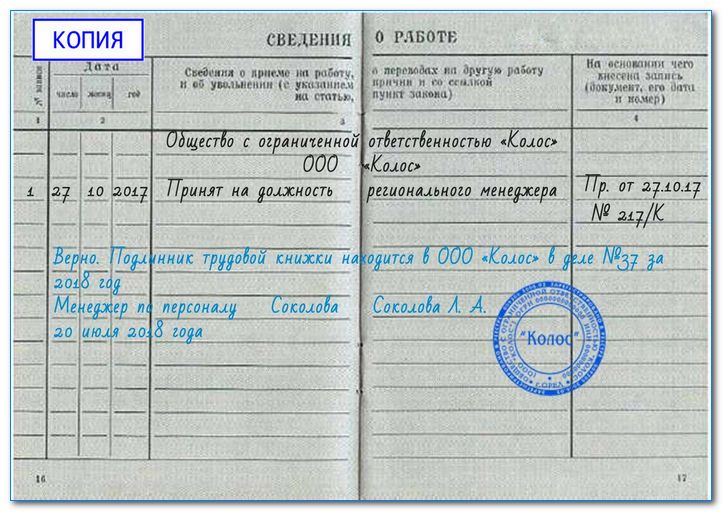 КОПИЯ
СВЕДЕНИЯ О РАБОТЕ
№ записи
Дата
число месяц год
Сведения о приеме на работу, о переводах на другую работу
и об увольнении (с указанием причин и со ссылкой
на статью, пункт закона)
На основании чего
внесена запись
(документ, его дата
и номер)
1 2 3 4
Общество с ограниченной ответственностью «Колос»
ООО «Колос»
1 27 10 2017 Принят на должность регионального менеджера Пр. от 27.10.17
№ 217/К
Верно. Подлинник трудовой книжки находится в ООО «Колос» в деле №37 за
2018 год
Менеджер по персоналу Соколова Соколова Л. А.
20 июля 2018 года
"Колос"
Г. ОРЕЛ
16 17